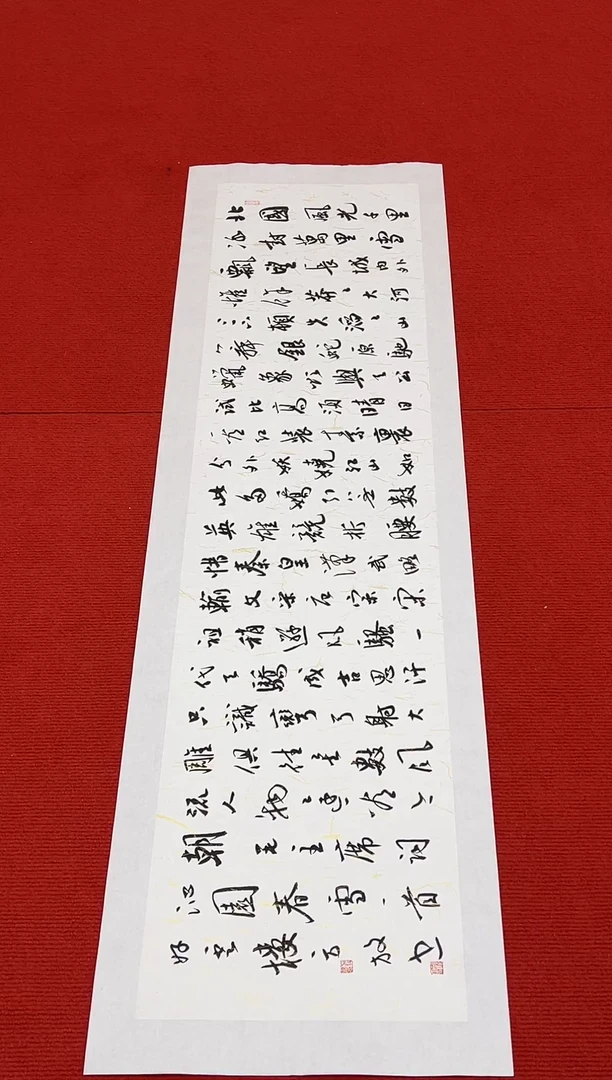 北國風光千里
冰封萬里雪
飄望長城内外
惟餘莽々大河
上下頓失滔々山
舞銀蛇原馳
蠟象欲與天公
試比高須晴日
看紅裝素裹
分外妖嬈江山如
此多嬌引無數
英雄競折腰
惜秦皇漢武略
輸文采唐宗宋
祖稍遜風騷一
代天驕成吉思汗
只識彎弓射大
雕俱往矣數風
流人物還看今
朝毛主席詞
沁園春雪一首
樓